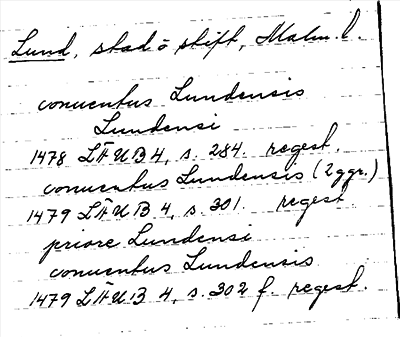 Lund, stad o stift, Malm. l.
conuentus Lundensis
Lundensi
1478 LÄUB 4, s. 284. regest.
conuentus Lundensis (2 ggr.)
1479 LÄUB 4, s. 301. regest
priore Lundensi
conuentus Lundensis
1479 LÄUB 4, s. 302 f. regest.